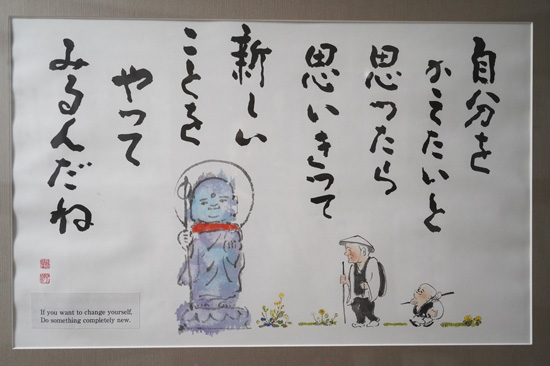 自分を
かえたいと
思ったら
思いきって
新しい
ことを
やって
みるんだね
If you want to change yourself,
Do something completely new.